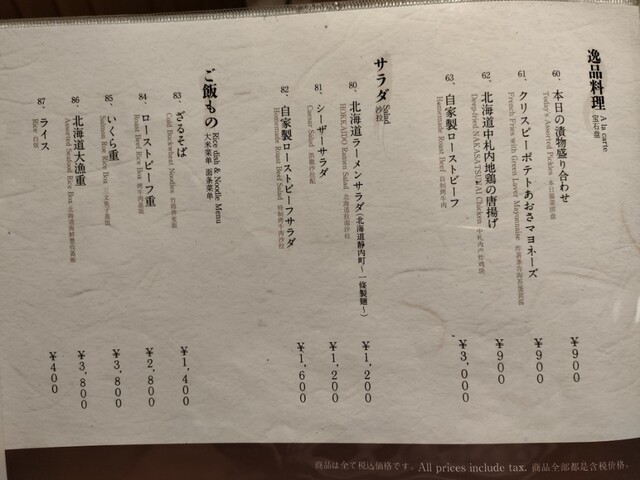 逸品料理 A la carte
宝石盘
60. 本日の漬物盛り合わせ ¥900
Today's Assorted Pickles
61. クリスピーポテトあおさマヨネーズ ¥900
French Fries with Green Laver Mayonnaise
62. 北海道中札内地鶏の唐揚げ ¥900
Deep-fried NAKASATSUNAI Chicken
63. 自家製ローストビーフ ¥3,000
Homemade Roast Beef 自制烤牛肉
サラダ Salad
沙拉
80. 北海道ラーメンサラダ(北海道静内町~一條製麺~) ¥1,200
HOKKAIDO Ramen Salad 北海道拉面沙拉
81. シーザーサラダ ¥1,200
Caesar Salad
82. 自家製ローストビーフサラダ ¥1,600
Homemade Roast Beef Salad 自制烤牛肉沙拉
ご飯もの Rice dish & Noodle Menu
大米菜单 面条菜单
83. ざるそば ¥1,400
Cold Buckwheat Noodles
84. ローストビーフ重 ¥2,800
Roast Beef Rice Box 烤牛肉盖饭
85. いくら重 ¥3,800
Salmon Roe Rice Box
86. 北海道大漁重 ¥3,800
Assorted Seafood Rice Box
87. ライス ¥400
Rice 白饭
商品は全て税込価格です。All prices include tax. 商品全部都是含税价格。